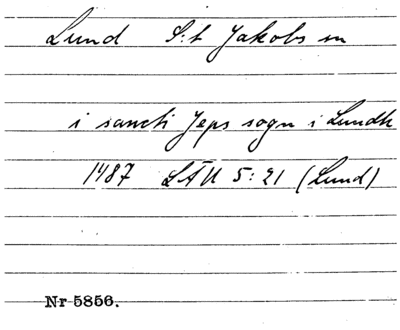 Lund S:t Jakobs sn
i sancti Jeps sogn i Lundh
1487 LÄU 5:21 (Lund)
Nr 5856.